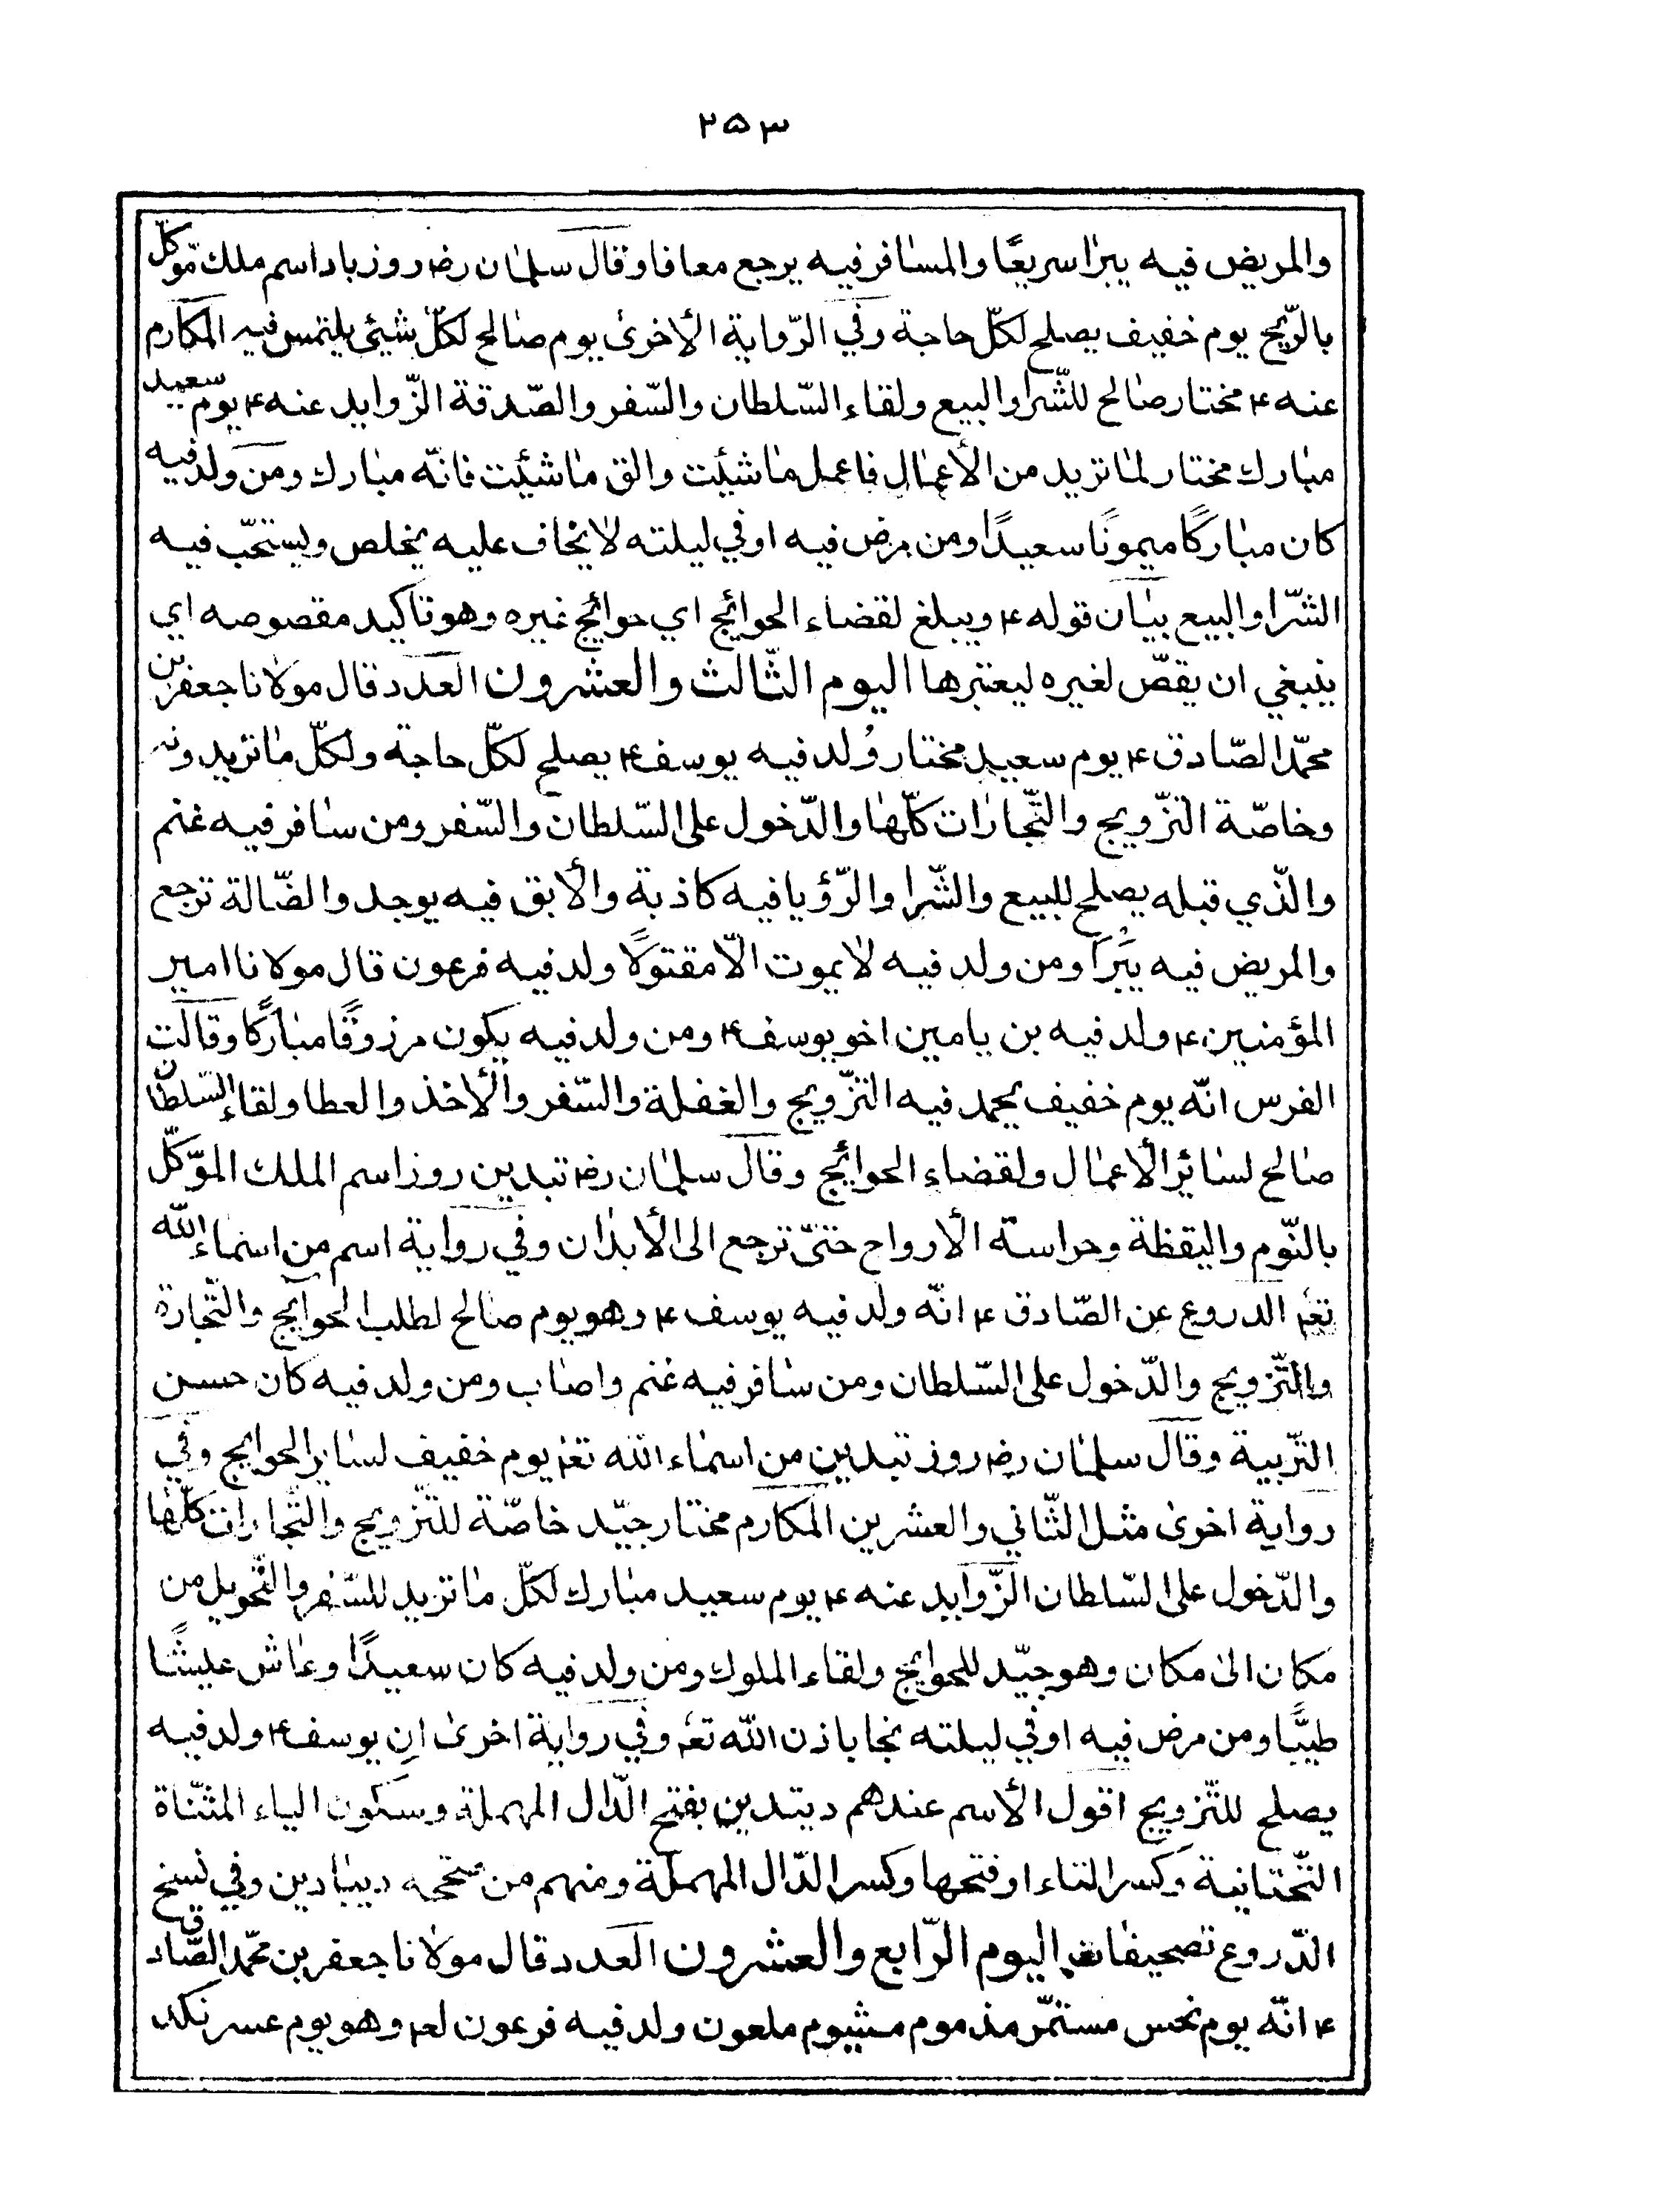 ۲۵۳
والمريض فيه يبرا سريعًا والمسافر فيه يرجع معافا وقال سلمان رضه روز باد اسم ملك موّكّل
بالرّيح يوم خفيف يصلح لكلّ حاجة وفي الرّواية الأخرىٰ يوم صالح لكلّ شيئ يلتمس فيه المكارم
عنه ۴ مختار صالح للشّرا والبيع ولقاء السّلطان والسّفر والصّدقة الزّوايد عنه ۴ يوم سعيد
مبارك مختار لما تريد من الأعمال فاعمل ما شئت والق ما شئت فانّه مبارك ومن ولد فيه
كان مباركًا ميمونًا سعيدًا ومن مرض فيه او في ليلته لا يخاف عليه يخلص ويستحّب فيه
الشّرا والبيع بيان قوله ۴ ويبلغ لقضاء الحوائج اي حوائج غيره وهو تاكيد مقصوصه اي
ينبغي ان يقصّ لغيره ليعتبرها اليوم الثّالث والعشرون العدد قال مولانا جعفر بن
محمّد الصّادق ۴ يوم سعيد مختار وُلد فيه يوسف ۴ يصلح لكلّ حاجة ولكلّ ما تريدونه
وخاصّة التزّويج والتّجارات كلّها والدّخول على السّلطان والسّفر ومن سافر فيه غنم
والّذي قبله يصلح للبيع والشّرا والرّؤيا فيه كاذبة والأبق فيه يوجد والضّالة ترجع
والمريض فيه يَبْرَا ومن ولد فيه لا يموت الّا مقتولًا ولد فيه فرعون قال مولانا امير
المؤمنين ۴ ولد فيه بن يامين اخو يوسف ۴ ومن ولد فيه يكون مرزوقًا مباركًا وقالت
الفرس انّه يوم خفيف يحمد فيه التزّويج والغفلة والسّفر والأخذ والعطا ولقاء السّلطان
صالح لسائر الأعمال ولقضاء الحوائج وقال سلمان رضه تبدين روز اسم الملك الموّكّل
بالنّوم واليقظة وحراسة الأرواح حتىّ ترجع الى الأبدان وفي رواية اسم من اسماء الله
تعه الدروع عن الصّادق ۴ انّه ولد فيه يوسف ۴ وهو يوم صالح لطلب الحوايج والتّجارة
والتّزويج والدّخول على السّلطان ومن سافر فيه غنم واصاب ومن ولد فيه كان حسن
التّربية وقال سلمان رضه روز تبدين من اسماء الله تعه يوم خفيف لساير الحوايج وفي
رواية اخرىٰ مثل الثّاني والعشرين المكارم مختار جيّد خاصّة للتّزويج والتّجارات كلّها
والدّخول على السّلطان الزّوايد عنه ۴ يوم سعيد مبارك لكلّ ما تريد للسّفر والتّحويل من
مكان الىٰ مكان وهو جيّد للحوايج ولقاء الملوك ومن ولد فيه كان سعيدًا وعاش عيشًا
طيّبًا ومن مرض فيه او في ليلته نجا باذن الله تعه وفي رواية اخرىٰ ان يوسف ۴ ولد فيه
يصلح للتّزويج اقول الأسم عندهم ديتدين بفتح الدّال المهملة وسكون الياء المثنّاة
التّحتانية وكسر التاء او فتحها وكسر الدّال المهملة ومنهم من دينادين وفي نسخ
الدّروع تصحيفات اليوم الرّابع والعشرون العدد قال مولانا جعفر بن محمّد الصّادق
۴ انّه يوم نحس مستمّر مذموم مشيوم ملعون ولد فيه فرعون لعه وهو يوم عسر نكد